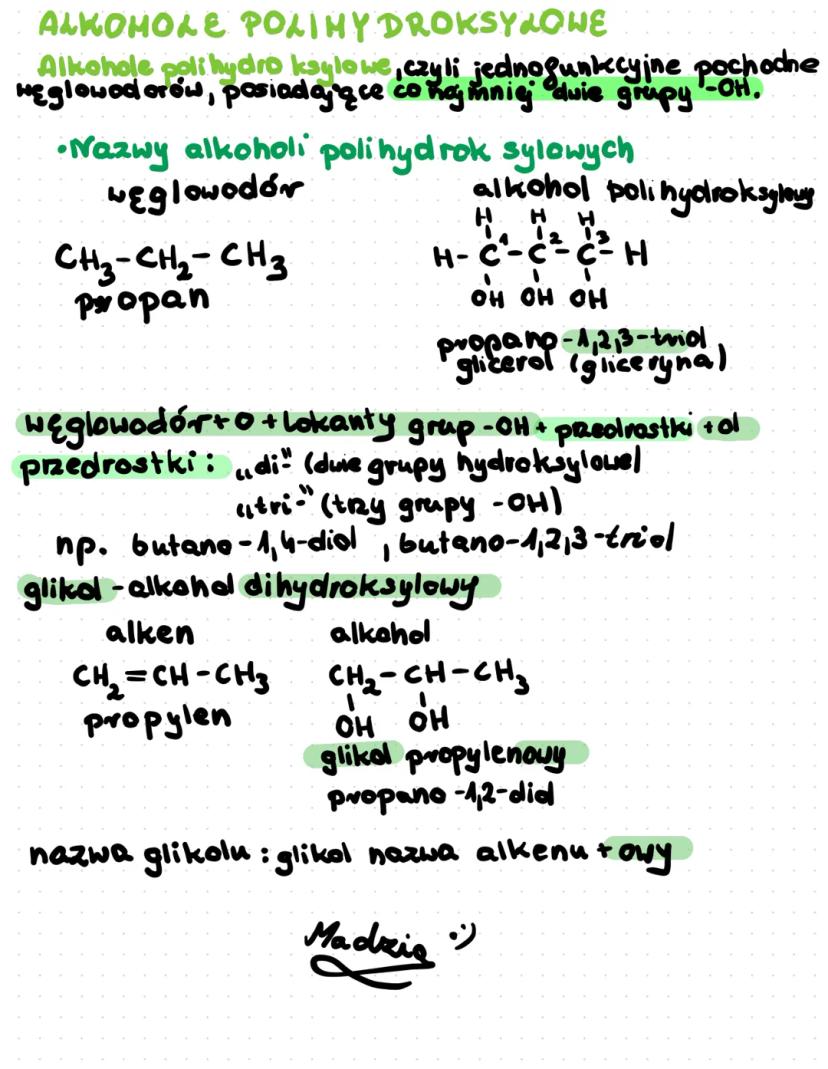 ALKOHOLE POLIHYDROKSYLOWE
Alkohole polihydroksylowe, czyli jednofunkcyjne pochodne
węglowodorów, posiadające co najmniej dwie grupy -OH.
•Nazwy alkoholi polihydroksylowych
węglowodór alkohol polihydroksylowy
H H H
CH₃-CH₂-CH₃ H-C¹-C²-C³-H
propan OH OH OH
propano-1,2,3-triol
glicerol (gliceryna)
węglowodór+o+lokanty grup -OH+przedrostki+ol
przedrostki: „di" (dwie grupy hydroksylowe)
„tri-" (trzy grupy -OH)
np. butano-1,4-diol, butano-1,2,3-triol
glikol-alkohol dihydroksylowy
alken alkohol
CH₂=CH-CH₃ CH₂-CH-CH₃
propylen OH OH
glikol propylenowy
propano-1,2-diol
nazwa glikolu: glikol nazwa alkenu + owy
Madzia :)